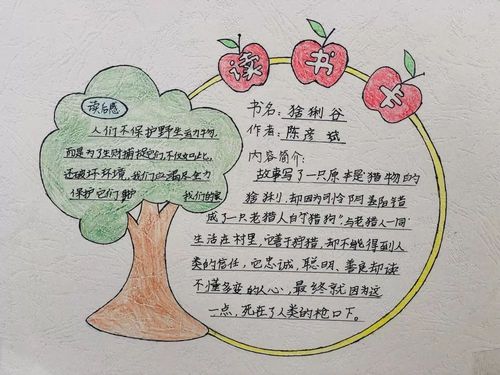 读书卡
书名:猞猁谷
作者:陈彦斌
内容简介:
故事写了一只原本是猎物的
猞猁,却因为司令阴差阳错
成了一只老猎人的"猎狗"与老猎人一同
生活在村里,它善于狩猎,却不能得到人
类的信任,它忠诚、聪明、善良却读
不懂多变的人心,最终就因为这
一点,死在了人类的枪口下。
读后感
人们不保护野生动物,
而是为了生财捕捉它们,不仅如此,
还破坏环境,我们应竭尽全力
保护它们 我们的家